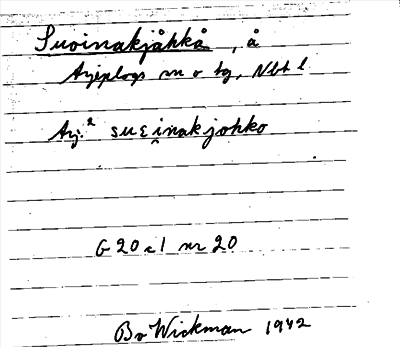 Suoinakjåkkå, å
Arjeplogs sn o tg, Nbt l
Arj.² suɛi̭nakjohko
G 20 c 1 nr 20
Bo Wickman 1942